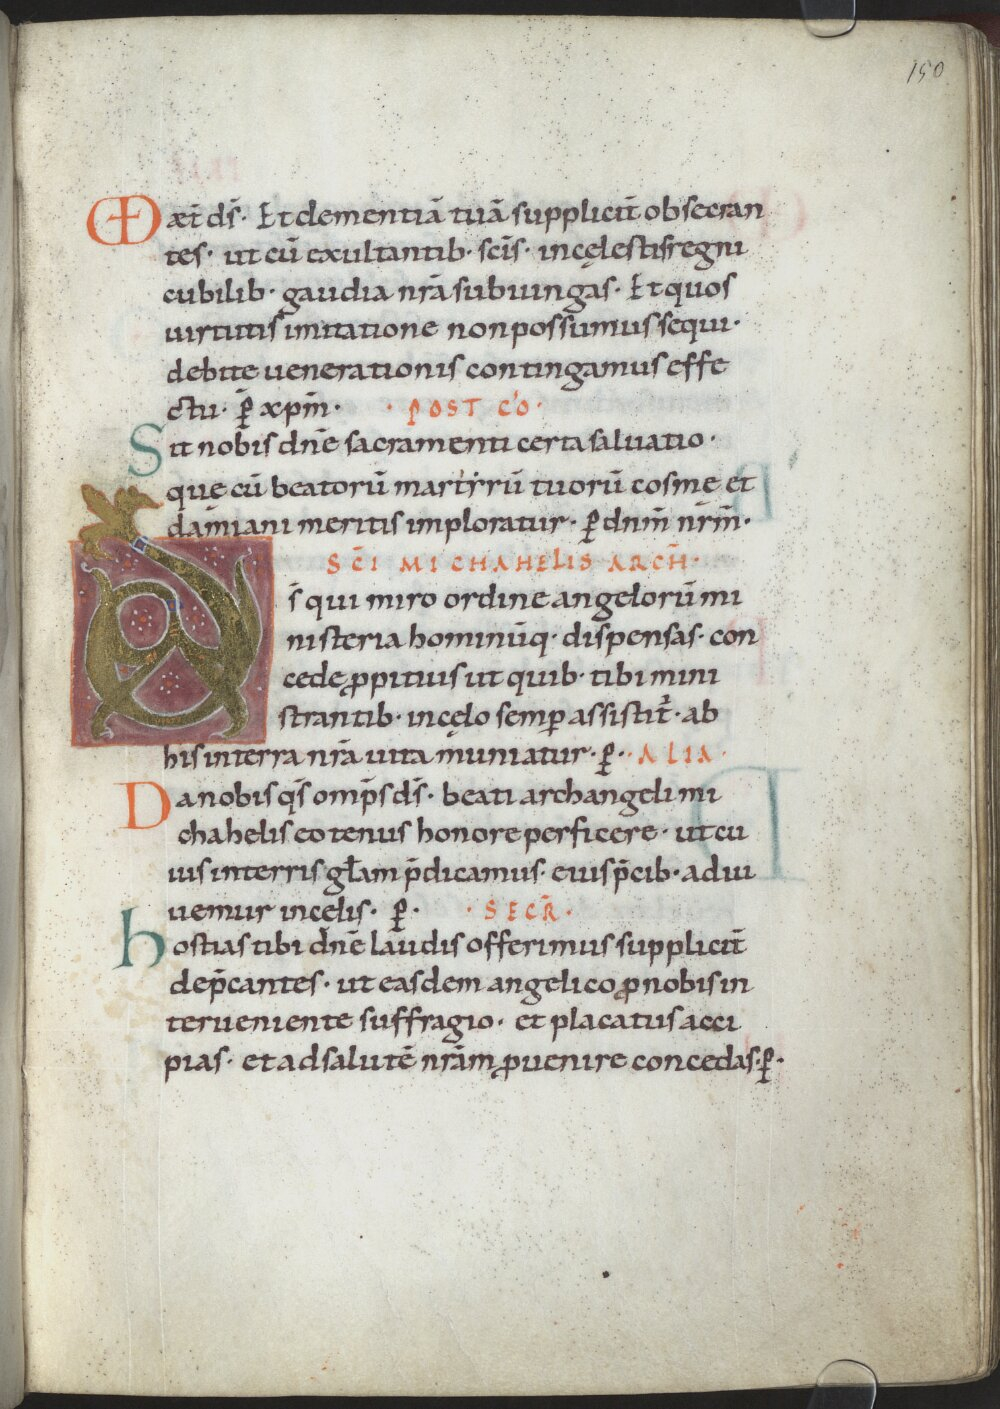 150
VD æt̄ d̄s. Et clementiā tuā suppliciт̄ obsecran
tes. ut cū exultantib· sc̄is. in cęlestis regni
cubilib· gaudia nr̄a subiungas. Et quos
uirtutis imitatione non possumus sequi.
debite uenerationis contingamus effe
ctu. p̄ xp̄m. POST CO.
Sit nobis dn̄e sacramenti certa saluatio.
que cū beatorū martẏrū tuorū cosmę et
damiani meritis imploratur. p̄ dnm̄ nrm̄.
SC̄I MICHAHELIS ARCH̄.
D s̄ qui miro ordine angelorū mi
nisteria hominūq· dispensas. con
cede ꝓpitius ut quib· tibi mini
strantib· in cęlo semp̄ assistit᷑. ab
his in terra nr̄a uita muniatur. p̄. ALIA.
Da nobis qs̄ omp̄s d̄s. beati archangeli mi
chahelis eotenus honore perficere. ut cu
ius in terris glam̄ p̄dicamus. eius p̄cib· adiu
uemur in cęlis. p̄. SECR̄.
hostias tibi dn̄e laudis offerimus suppliciт̄
dep̄cantes. ut easdem angelico ꝓ nobis in
terueniente suffragio. et placatus acci
pias. et ad salutē nrām ꝓuenire concedas. p̄.